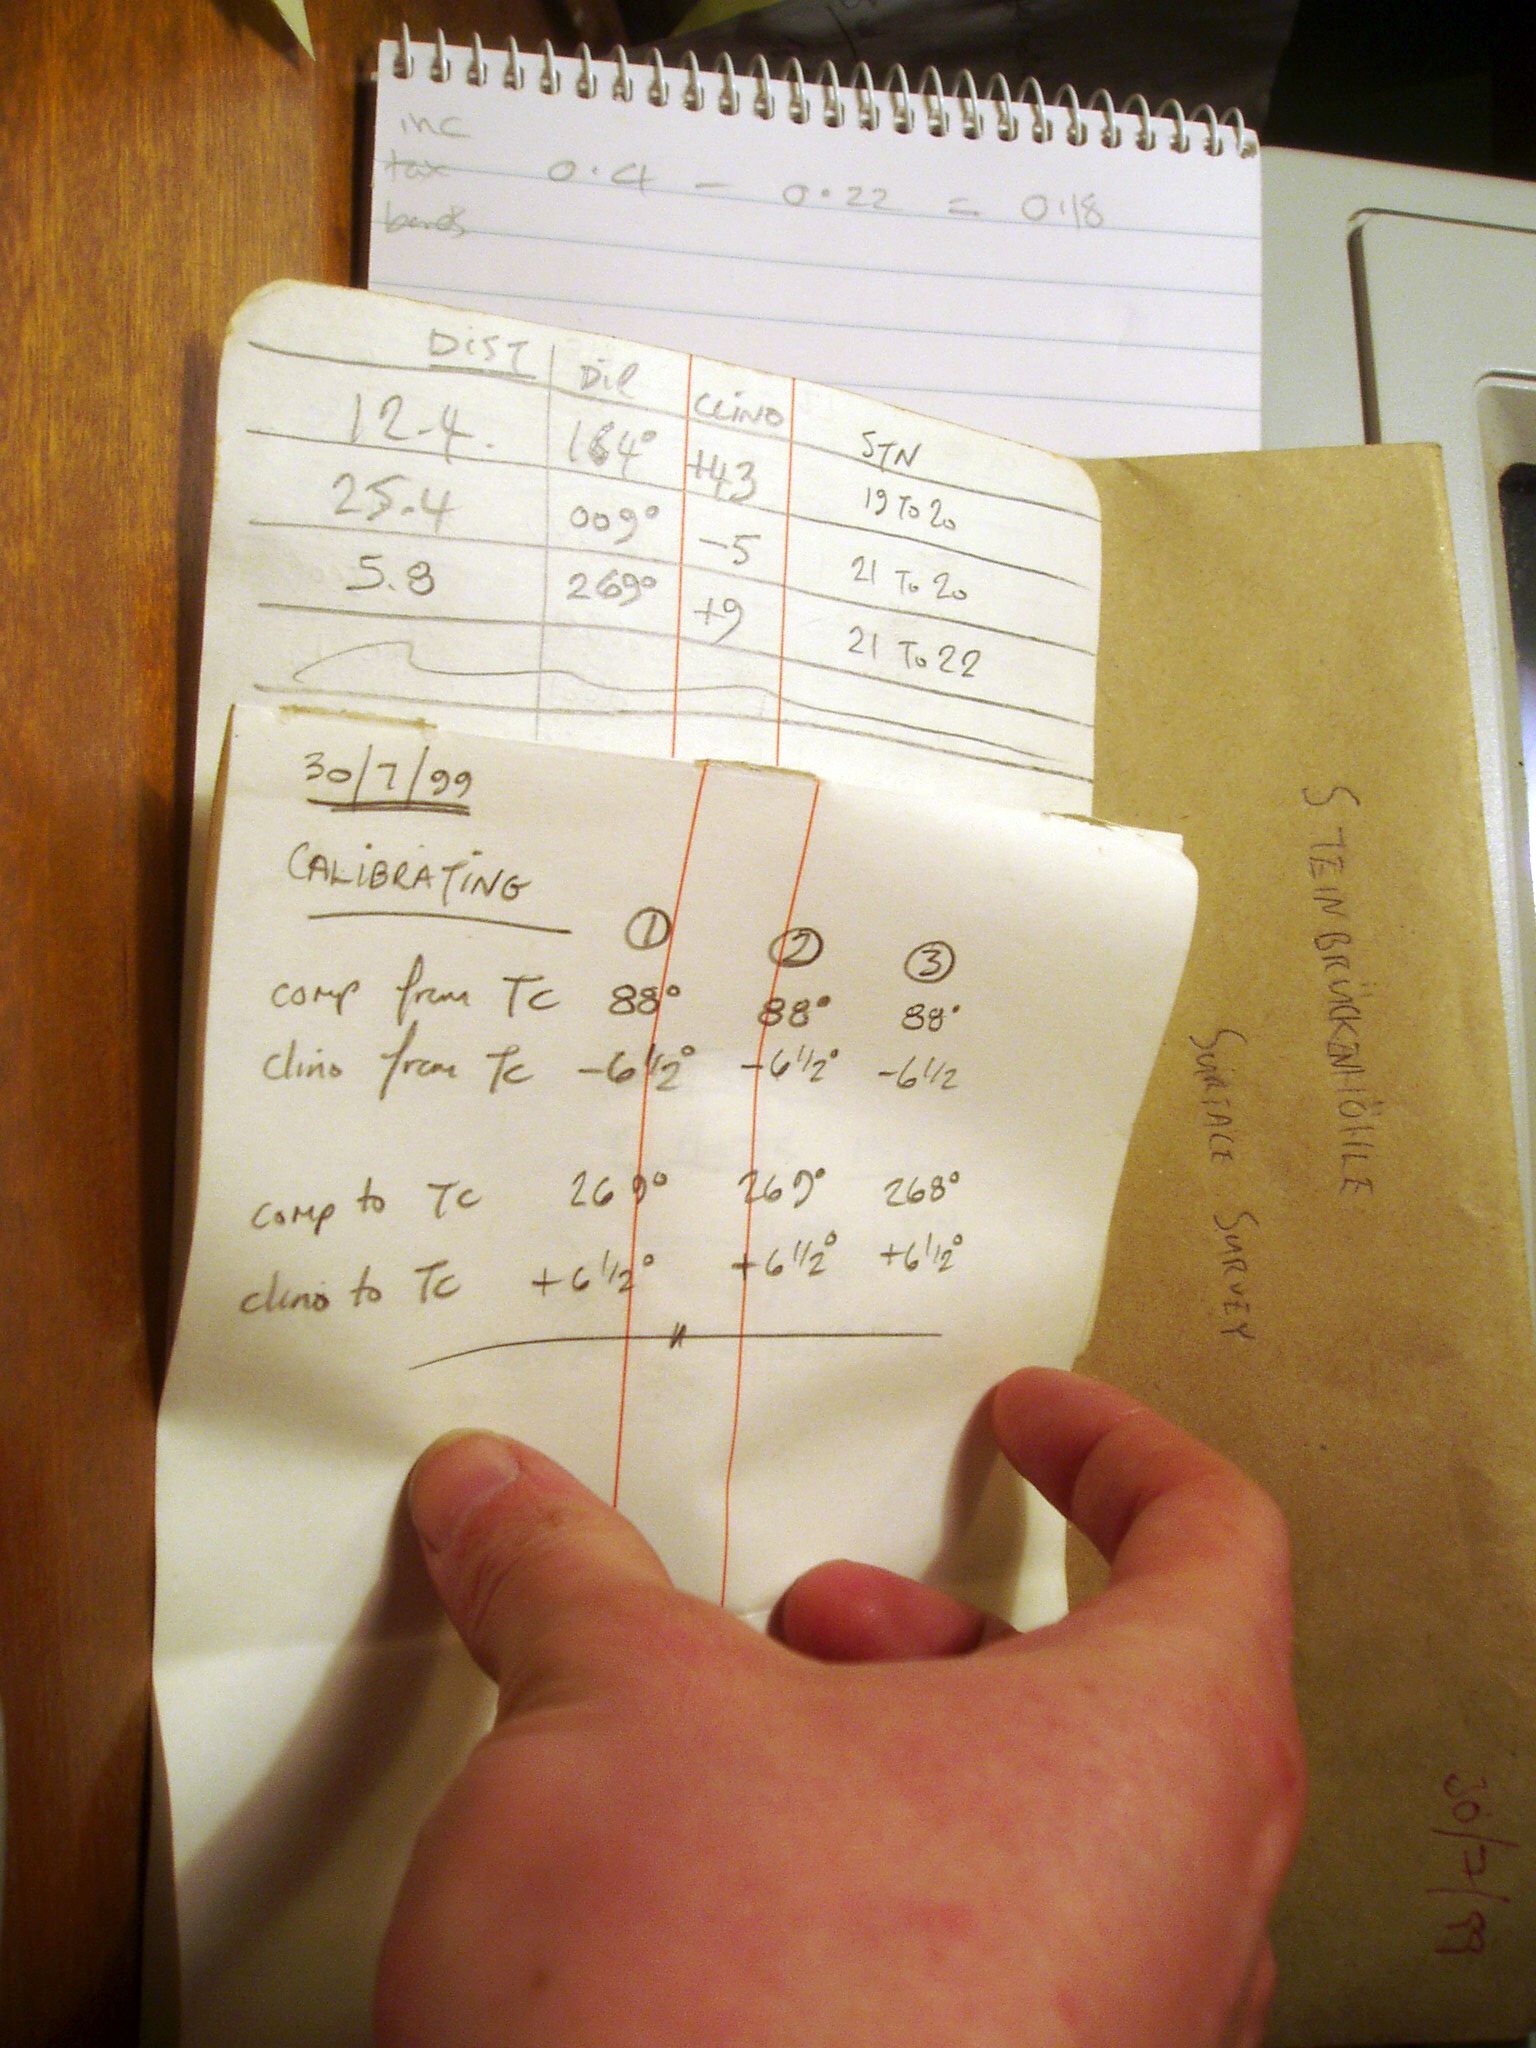 inc
tax 0.4 - 0.22 = 0.18
bands
DIST DIR CLINO STN
12.4. 164° +43 19 To 20
25.4 009° -5 21 To 20
5.8 269° +9 21 To 22
30/7/99
CALIBRATING
① ② ③
comp from TC 88° 88° 88°
clino from TC -6 1/2° -6 1/2° -6 1/2
comp to TC 269° 269° 268°
clino to TC +6 1/2° +6 1/2° +6 1/2°
STEINBRÜCKENHÖHLE
SURFACE SURVEY
30/7/99